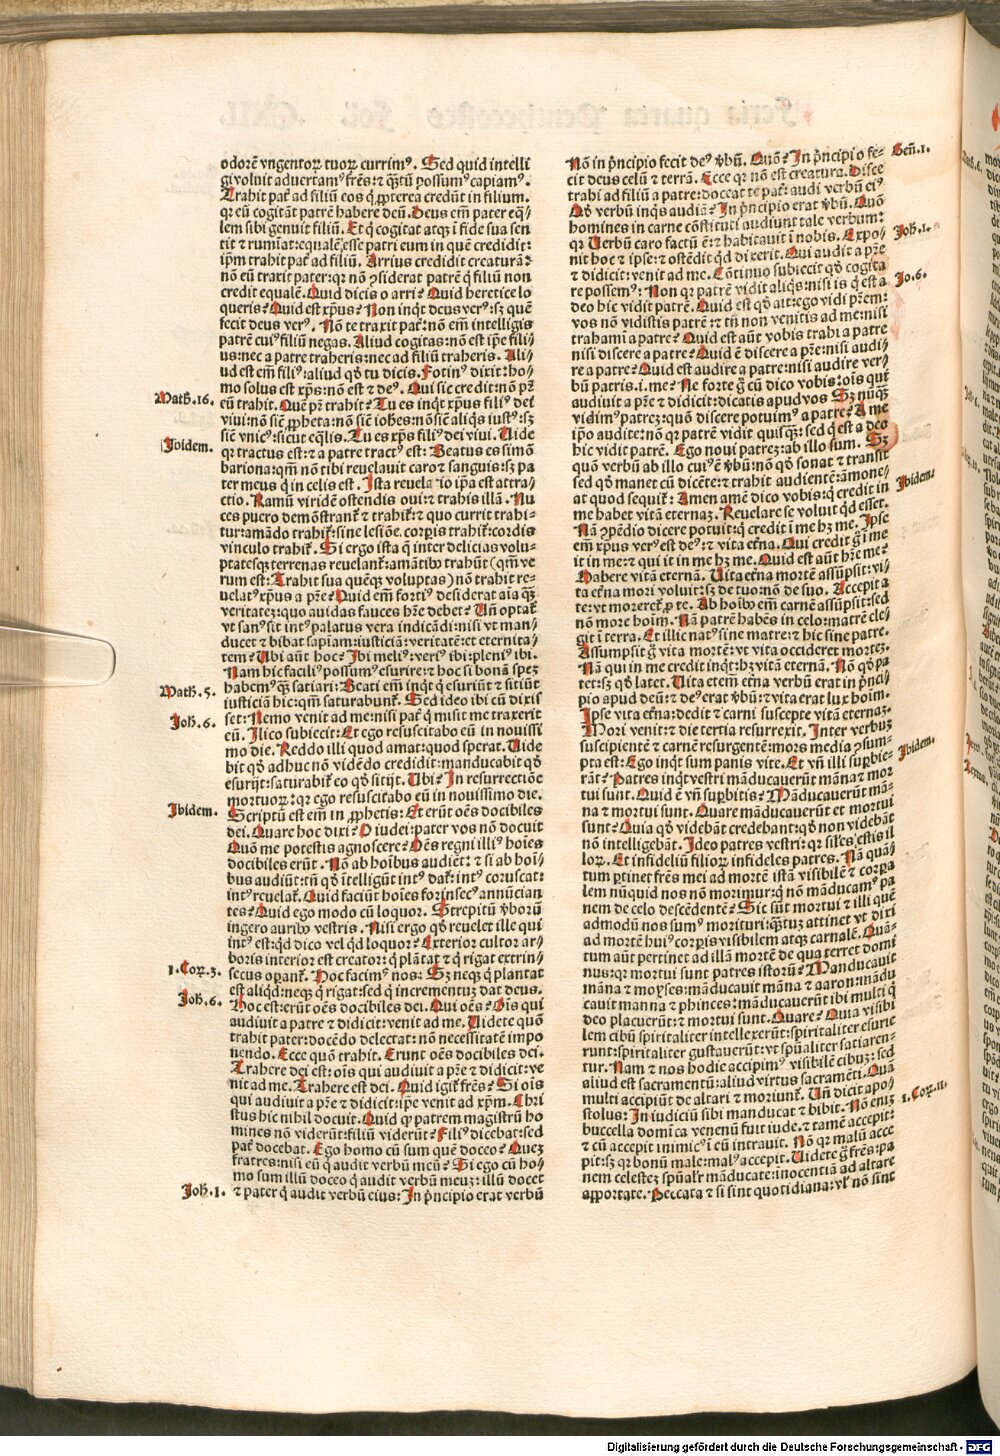 odorē vngentoꝝ tuoꝝ currimꝰ. Sed quid intelli
gi voluit aduertamꝰ frēs: ⁊ qͣꝫtū possumꝰ capiamꝰ.
Trahit paṫ ad filiū eos q̄ ꝓpterea credūt in filium.
qꝛ eū cogitāt patrē habere deū. Deus em̄ pater eq̄
lem sibi genuit filiū. Et q̄ cogitat atqꝫ ī fide sua sen
tit ⁊ rumīat: equalē esse patri eum in quē credidit:
ip̄m trahit paṫ ad filiū. Arrius credidit creaturā:
nō eū traxit pater: qꝛ nō ꝯsiderat patrē q̄ filiū non
credit equalē. Quid dicis o arri? Quid heretice lo
queris? Quid est xp̄us? Non inqt deus verꝰ: sꝫ quē
fecit deus verꝰ. Nō te traxit paṫ: nō em̄ intelligis
patrē cuiꝰ filiū negas. Aliud cogitas: nō est ip̄e fili
us: nec a patre traheris: nec ad filiū traheris. Ali
ud est em̄ filiꝰ: aliud qđ tu dicis. Fotinꝰ dixit: ho
mo solus est xp̄s: nō est ⁊ deꝰ. Qui sic credit: nō pr̄
Math. 16.
eū trahit. Quē pr̄ trahit? Tu es inqt xp̄us filiꝰ dei
viui: nō sic̄ ꝓpheta: nō sic̄ iohēs: nō sic̄ aliqs iustꝰ: sꝫ
sic̄ vnicꝰ: sicut eq̄lis. Tu es xp̄s filiꝰ dei viui. Uide
Ibidem.
qꝛ tractus est: ⁊ a patre tractꝰ est: Beatus es simō
bariona: qm̄ nō tibi reuelauit caro ⁊ sanguis: sꝫ pa
ter meus q̄ in celis est. Ista reuelatio ip̄a est attra
ctio. Ramū viridē ostendis oui: ⁊ trahis illā. Nu
ces puero demōstranṫ ⁊ trahiṫ: ⁊ quo currit trahi
tur: amādo trahiṫ: sine lesiōe. corꝑis trahiṫ: cordis
vinculo trahiṫ. Si ergo ista q̄ inter delicias volu
ptatesqꝫ terrenas reuelanṫ: amātibꝰ trahūt (qm̄ ve
rum est: Trahit sua quēqꝫ voluptas) nō trahit re
uelatꝰ xp̄us a pr̄e? Quid em̄ fortiꝰ desiderat aīa qͣꝫ
veritateꝫ: quo auidas fauces hr̄e debet? Un̄ optaṫ
vt sanꝰ sit intꝰ palatus vera indicādi: nisi vt man
ducet ⁊ bibat sapiam: iusticiā: veritatē: et eternita
tem? Ubi aūt hoc? Ibi meliꝰ: veriꝰ ibi: pleniꝰ ibi.
Nam hic faciliꝰ possumꝰ esurire: ⁊ hoc si bonā speꝫ
Math. 5.
habemꝰ qͣꝫ satiari: Beati em̄ inqt q̄ esuriūt ⁊ sitiūt
iusticiā hic: qm̄ saturabunṫ. Sed ideo ibi cū dixis
Joh. 6.
set: Nemo venit ad me: nisi paṫ q̄ misit me traxerit
eū. Ilico subiecit: Et ego resuscitabo eū in nouissi
mo die. Reddo illi quod amat: quod sperat. Uide
bit qđ adhuc nō vidēdo credidit: manducabit qđ
esurijt: saturabiṫ eo qđ sitijt. Ubi? In resurrectiōe
mortuoꝝ: qꝛ ego resuscitabo eū in nouissimo die.
Ibidem.
Scriptū est em̄ in ꝓphetis: Et erūt oēs docibiles
dei. Quare hoc dixi? O iudei: pater vos nō docuit
Quō me potestis agnoscere? Oēs regni illiꝰ hoīes
docibiles erūt. Nā ab hoībus audiēt: ⁊ si ab hoī
bus audiūt: tn̄ qđ ītelligūt intꝰ daṫ: intꝰ coruscat:
intꝰ reuelaṫ. Quid faciūt hoīes forinsecꝰ annūcian
tes? Quid ego modo cū loquor. Strepitū vboꝝ
ingero auribꝰ vestris. Nisi ergo qđ reuelet ille qui
intꝰ est: qd dico vel qd loquor? Exterior cultor ar
boris interior est creator: q̄ plātat ⁊ q̄ rigat extrin
1. Coꝝ. 3.
secus oꝑanṫ. Hoc facimꝰ nos: Sꝫ neqꝫ q̄ plantat
est aliqd: neqꝫ q̄ rigat: sed q̄ incrementuꝫ dat deus.
Joh. 6.
Hoc est: erūt oēs docibiles dei. Qui oēs? Oīs qui
audiuit a patre ⁊ didicit: venit ad me. Uidete quō
trahit pater: docēdo delectat: nō necessitatē impo
nendo. Ecce quō trahit. Erunt oēs docibiles dei.
Trahere dei est: oīs qui audiuit a pr̄e ⁊ didicit: ve
nit ad me. Trahere est dei. Quid igiṫ frēs? Si oīs
qui audiuit a pr̄e ⁊ didicit: ip̄e venit ad xp̄m. Chri
stus hic nihil docuit. Quid qꝫ patrem magistrū ho
mines nō viderūt: filiū viderūt? Filiꝰ dicebat: sed
paṫ docebat. Ego homo cū sum quē doceo? Queꝫ
fratres: nisi eū q̄ audit verbū meū? Si ego cū ho
mo sum illū doceo q̄ audit verbū meuꝫ: illū docet
Joh. 1.
⁊ pater q̄ audit verbū eius: In pn̄cipio erat verbū
Gen̄. 1.
Nō in pn̄cipio fecit deꝰ vbū. Quō? In pn̄cipio fe
cit deus celū ⁊ terrā. Ecce qꝛ nō est creatura. Disce
trahi ad filiū a patre: doceat te paṫ: audi verbū eiꝰ
Qđ verbū inqs audiā? In pn̄cipio erat vbū. Quō
homines in carne cōstituti audiunt tale verbum:
Joh. 1.
qꝛ Uerbū caro factū ē: ⁊ habitauit ī nobis. Expo
nit hoc ⁊ ipse: ⁊ ostēdit qđ dixerit. Qui audit a pr̄e
⁊ didicit: venit ad me. Cōtinuo subiecit qđ cogita
Jo. 6.
re possemꝰ: Non qꝛ patrē vidit aliqs: nisi is q̄ est a
deo hic vidit patrē. Quid est qđ ait: ego vidi pr̄em:
vos nō vidistis patrē: ⁊ tn̄ non venitis ad me: nisi
trahamī a patre? Quid est aūt vobis trahi a patre
nisi discere a patre? Quid ē discere a pr̄e: nisi audi
re a patre? Quid est audire a patre: nisi audire ver
bū patris. i. me? Ne forte g̊ cū dico vobis: oīs qui
audiuit a pr̄e ⁊ didicit: dicatis apud vos Sꝫ nūqͣꝫ
vidimꝰ patreꝫ: quō discere potuimꝰ a patre? A me
ip̄o audite: nō qꝛ patrē vidit quisqͣꝫ: sed q̄ est a deo
hic vidit patrē. Ego noui patreꝫ: ab illo sum. Sꝫ
quō verbū ab illo cuiꝰ ē vbū: nō qđ sonat ⁊ transit
Ibidem.
sed qđ manet cū dicēte: ⁊ trahit audientē: āmone
at quod sequiṫ: Amen amē dico vobis: q̄ credit in
me habet vitā eternaꝫ. Reuelare se voluit qd esset.
Nā ꝯpēdio dicere potuit: q̄ credit ī me hꝫ me. Ipse
em̄ xp̄us verꝰ est deꝰ: ⁊ vita etn̄a. Qui credit g̊ ī me
it in me: ⁊ qui it in me hꝫ me. Quid est aūt hr̄e me?
Habere vitā eternā. Uita etn̄a mortē assūpsit: vi
ta etn̄a mori voluit: sꝫ de tuo: nō de suo. Accepit a
te: vt morereṫ ꝓ te. Ab hoībꝰ em̄ carnē assūpsit: sed
nō more hoīm. Nā patrē habēs in celo: matrē ele
git ī terra. Et illic natꝰ sine matre: ⁊ hic sine patre.
Assumpsit g̊ vita mortē: vt vita occideret morteꝫ.
Nā qui in me credit inqt: hꝫ vitā eternā. Nō qđ pa
tet: sꝫ qđ latet. Uita etem̄ etn̄a verbū erat in pn̄ci
pio apud deū: ⁊ deꝰ erat vbū: ⁊ vita erat lux hoīm.
Ipse vita etn̄a: dedit ⁊ carni suscepte vitā eternaꝫ.
Mori venit: ⁊ die tertia resurrexit. Inter verbuꝫ
suscipientē ⁊ carnē resurgentē: mors media ꝯsum
Ibidem.
pta est: Ego inqt sum panis vite. Et vn̄ illi suꝑbie
rāt? Patres inqt vestri māducauerūt māna ⁊ mor
tui sunt. Quid ē vn̄ suꝑbitis? Māducauerūt mā
na ⁊ mortui sunt. Quare māducauerūt et mortui
sunt? Quia qđ videbāt credebant: qđ non videbāt
nō intelligebāt. Ideo patres vestri: qꝛ siłes estis il
loꝝ. Et infideliū filioꝝ infideles patres. Nā quā
tum ꝑtinet frēs mei ad mortē istā visibilē ⁊ corꝑa
lem nūquid nos nō morimur: q̄ nō māducamꝰ pa
nem de celo descēdentē? Sic sūt mortui ⁊ illi quē
admodū nos sumꝰ morituri: qͣꝫtuꝫ attinet vt dixi
ad mortē huiꝰ corꝑis visibilem atqꝫ carnalē. Quā
tum aūt pertinet ad illā mortē de qua terret domi
nus: qꝛ mortui sunt patres istorū? Manducauit
māna ⁊ moyses: māducauit māna ⁊ aaron: mādu
cauit manna ⁊ phinees: māducauerūt ibi multi q̄
deo placuerūt: ⁊ mortui sunt. Quare? Quia visibi
lem cibū spiritaliter intellexerūt: spiritaliter esurie
runt: spiritaliter gustauerūt: vt spūaliter satiaren
tur. Nam ⁊ nos hodie accipimꝰ visibilē cibuꝫ: sed
aliud est sacramentū: aliud virtus sacramēti. Quā
multi accipiūt de altari ⁊ moriunṫ. Un̄ dicit apo
1. Coꝝ. 11.
stolus: In iudiciū sibi manducat ⁊ bibit. Nō eniꝫ
buccella domīca venenū fuit iude. ⁊ tamē accepit:
⁊ cū accepit inimicꝰ ī eū intrauit. Nō qꝛ malū acce
pit: sꝫ qꝛ bonū male: malꝰ accepit. Uidete g̊ frēs: pa
nem celesteꝫ spūalr̄ māducate: inocentiā ad altare
aꝑportate. Peccata ⁊ si sint quotidiana: vl̕ nō sint
Digitalisierung gefördert durch die Deutsche Forschungsgemeinschaft - DFG